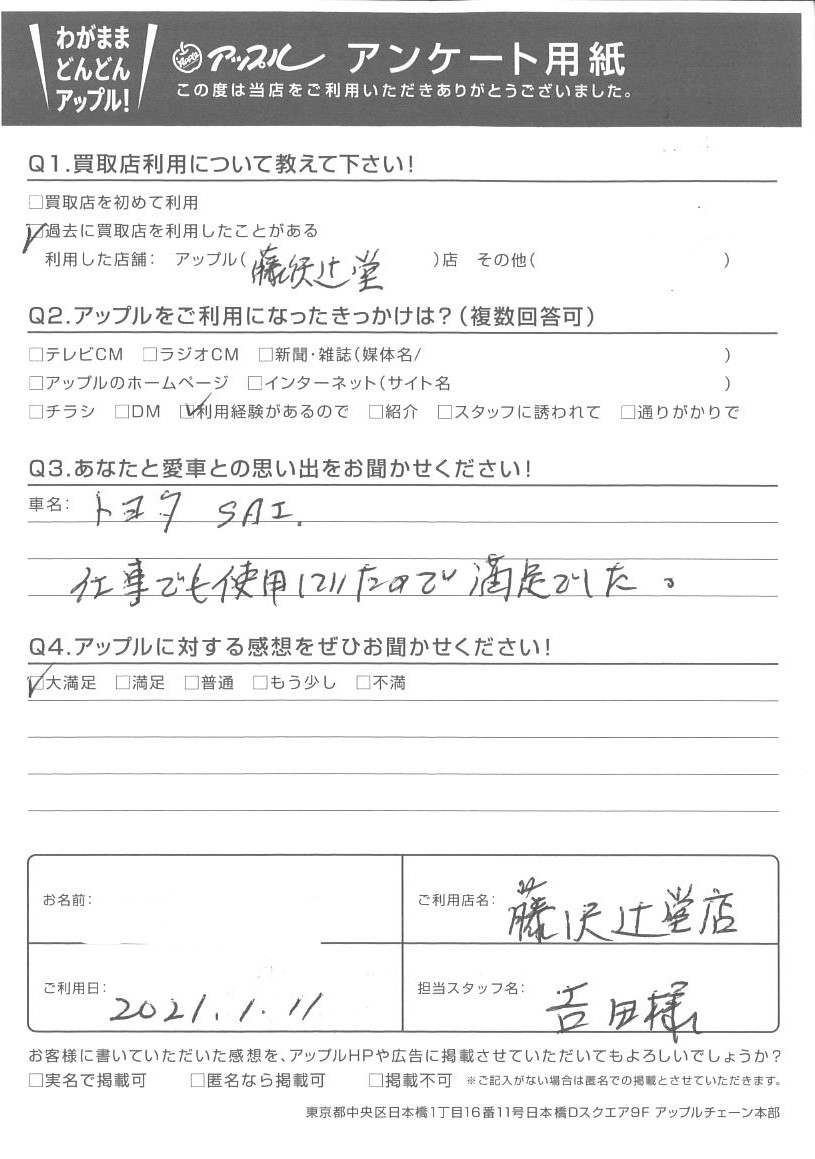 わがまま
どんどん
アップル!
アップル アンケート用紙
この度は当店をご利用いただきありがとうございました。
Q1.買取店利用について教えて下さい!
□買取店を初めて利用
☑過去に買取店を利用したことがある
利用した店舗: アップル(藤沢辻堂)店 その他( )
Q2.アップルをご利用になったきっかけは?(複数回答可)
□テレビCM □ラジオCM □新聞・雑誌(媒体名/ )
□アップルのホームページ □インターネット(サイト名 )
□チラシ □DM ☑利用経験があるので □紹介 □スタッフに誘われて □通りがかりで
Q3.あなたと愛車との思い出をお聞かせください!
車名: トヨタ SAI.
仕事でも使用していたので満足でした。
Q4.アップルに対する感想をぜひお聞かせください!
☑大満足 □満足 □普通 □もう少し □不満
お名前:
ご利用店名: 藤沢辻堂店
ご利用日: 2021.1.11
担当スタッフ名: 吉田様
お客様に書いていただいた感想を、アップルHPや広告に掲載させていただいてもよろしいでしょうか?
□実名で掲載可 □匿名なら掲載可 □掲載不可 ※ご記入がない場合は匿名での掲載とさせていただきます。
東京都中央区日本橋1丁目16番11号日本橋Dスクエア9F アップルチェーン本部